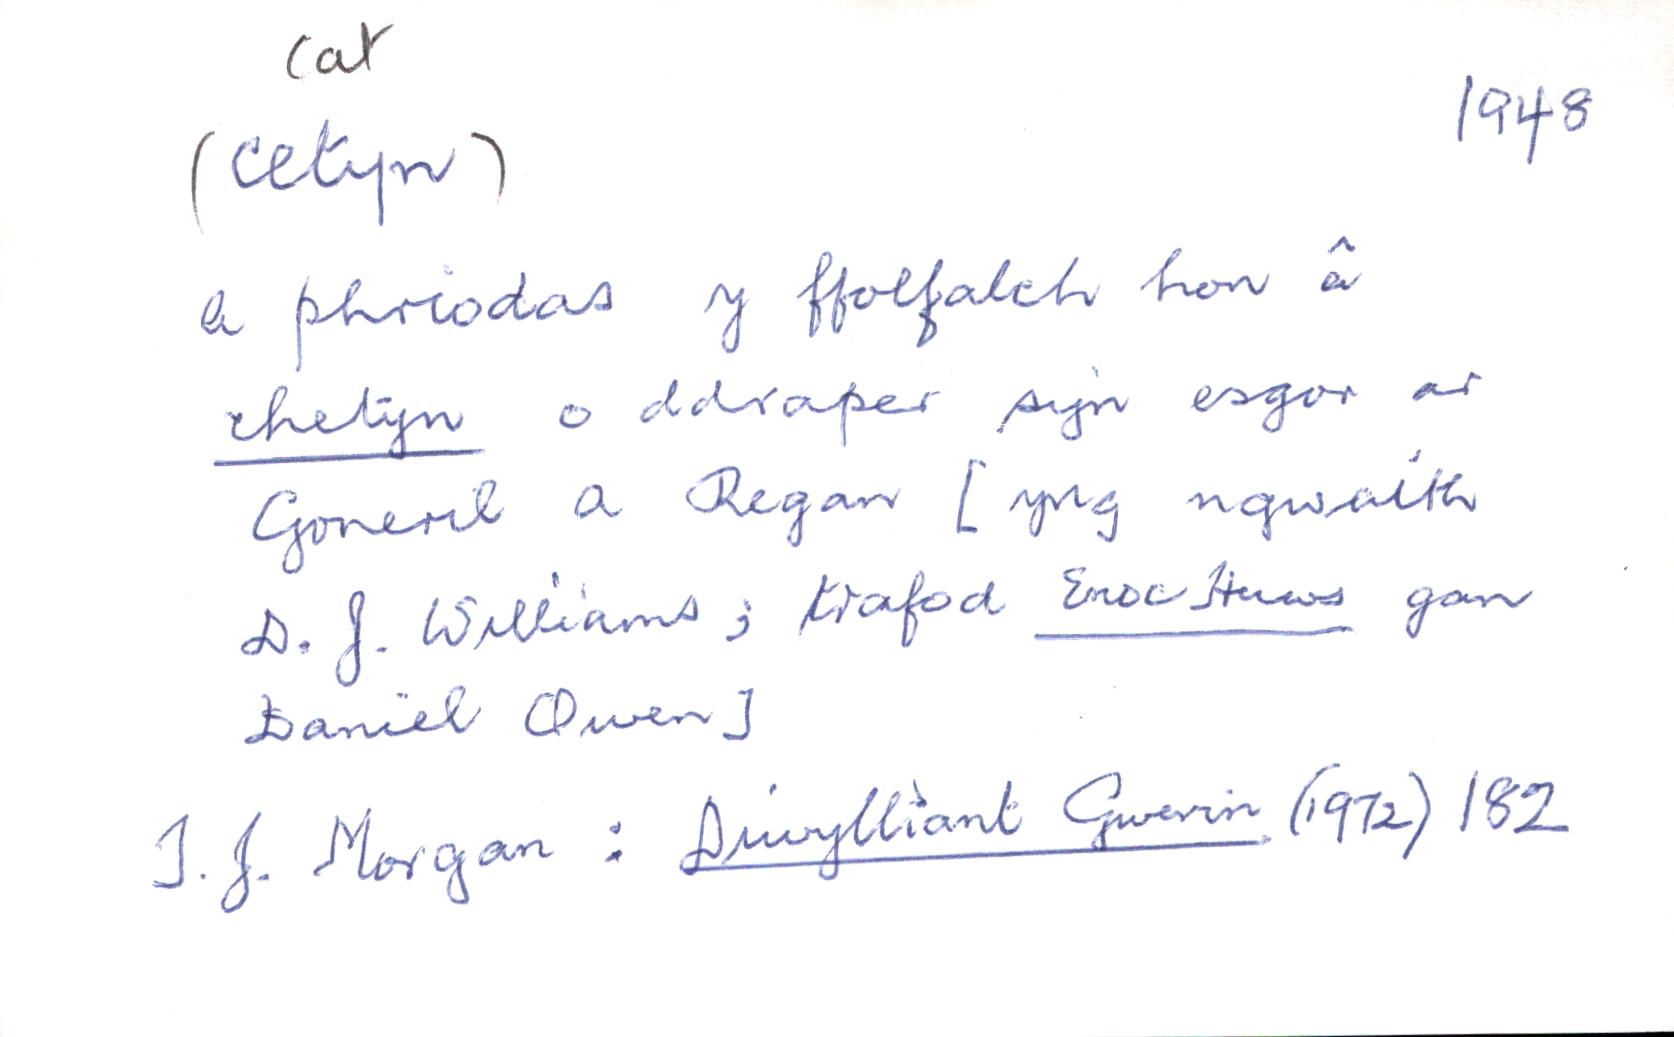 cat
1948
(cetyn)
a phriodas y ffolfalch hon â
chetyn o ddraper sy'n esgor ar
Goneril a Regan [yng ngwaith
D. J. Williams; trafod Enoc Huws gan
Daniel Owen]
T. J. Morgan: Diwylliant Gwerin (1972) 182